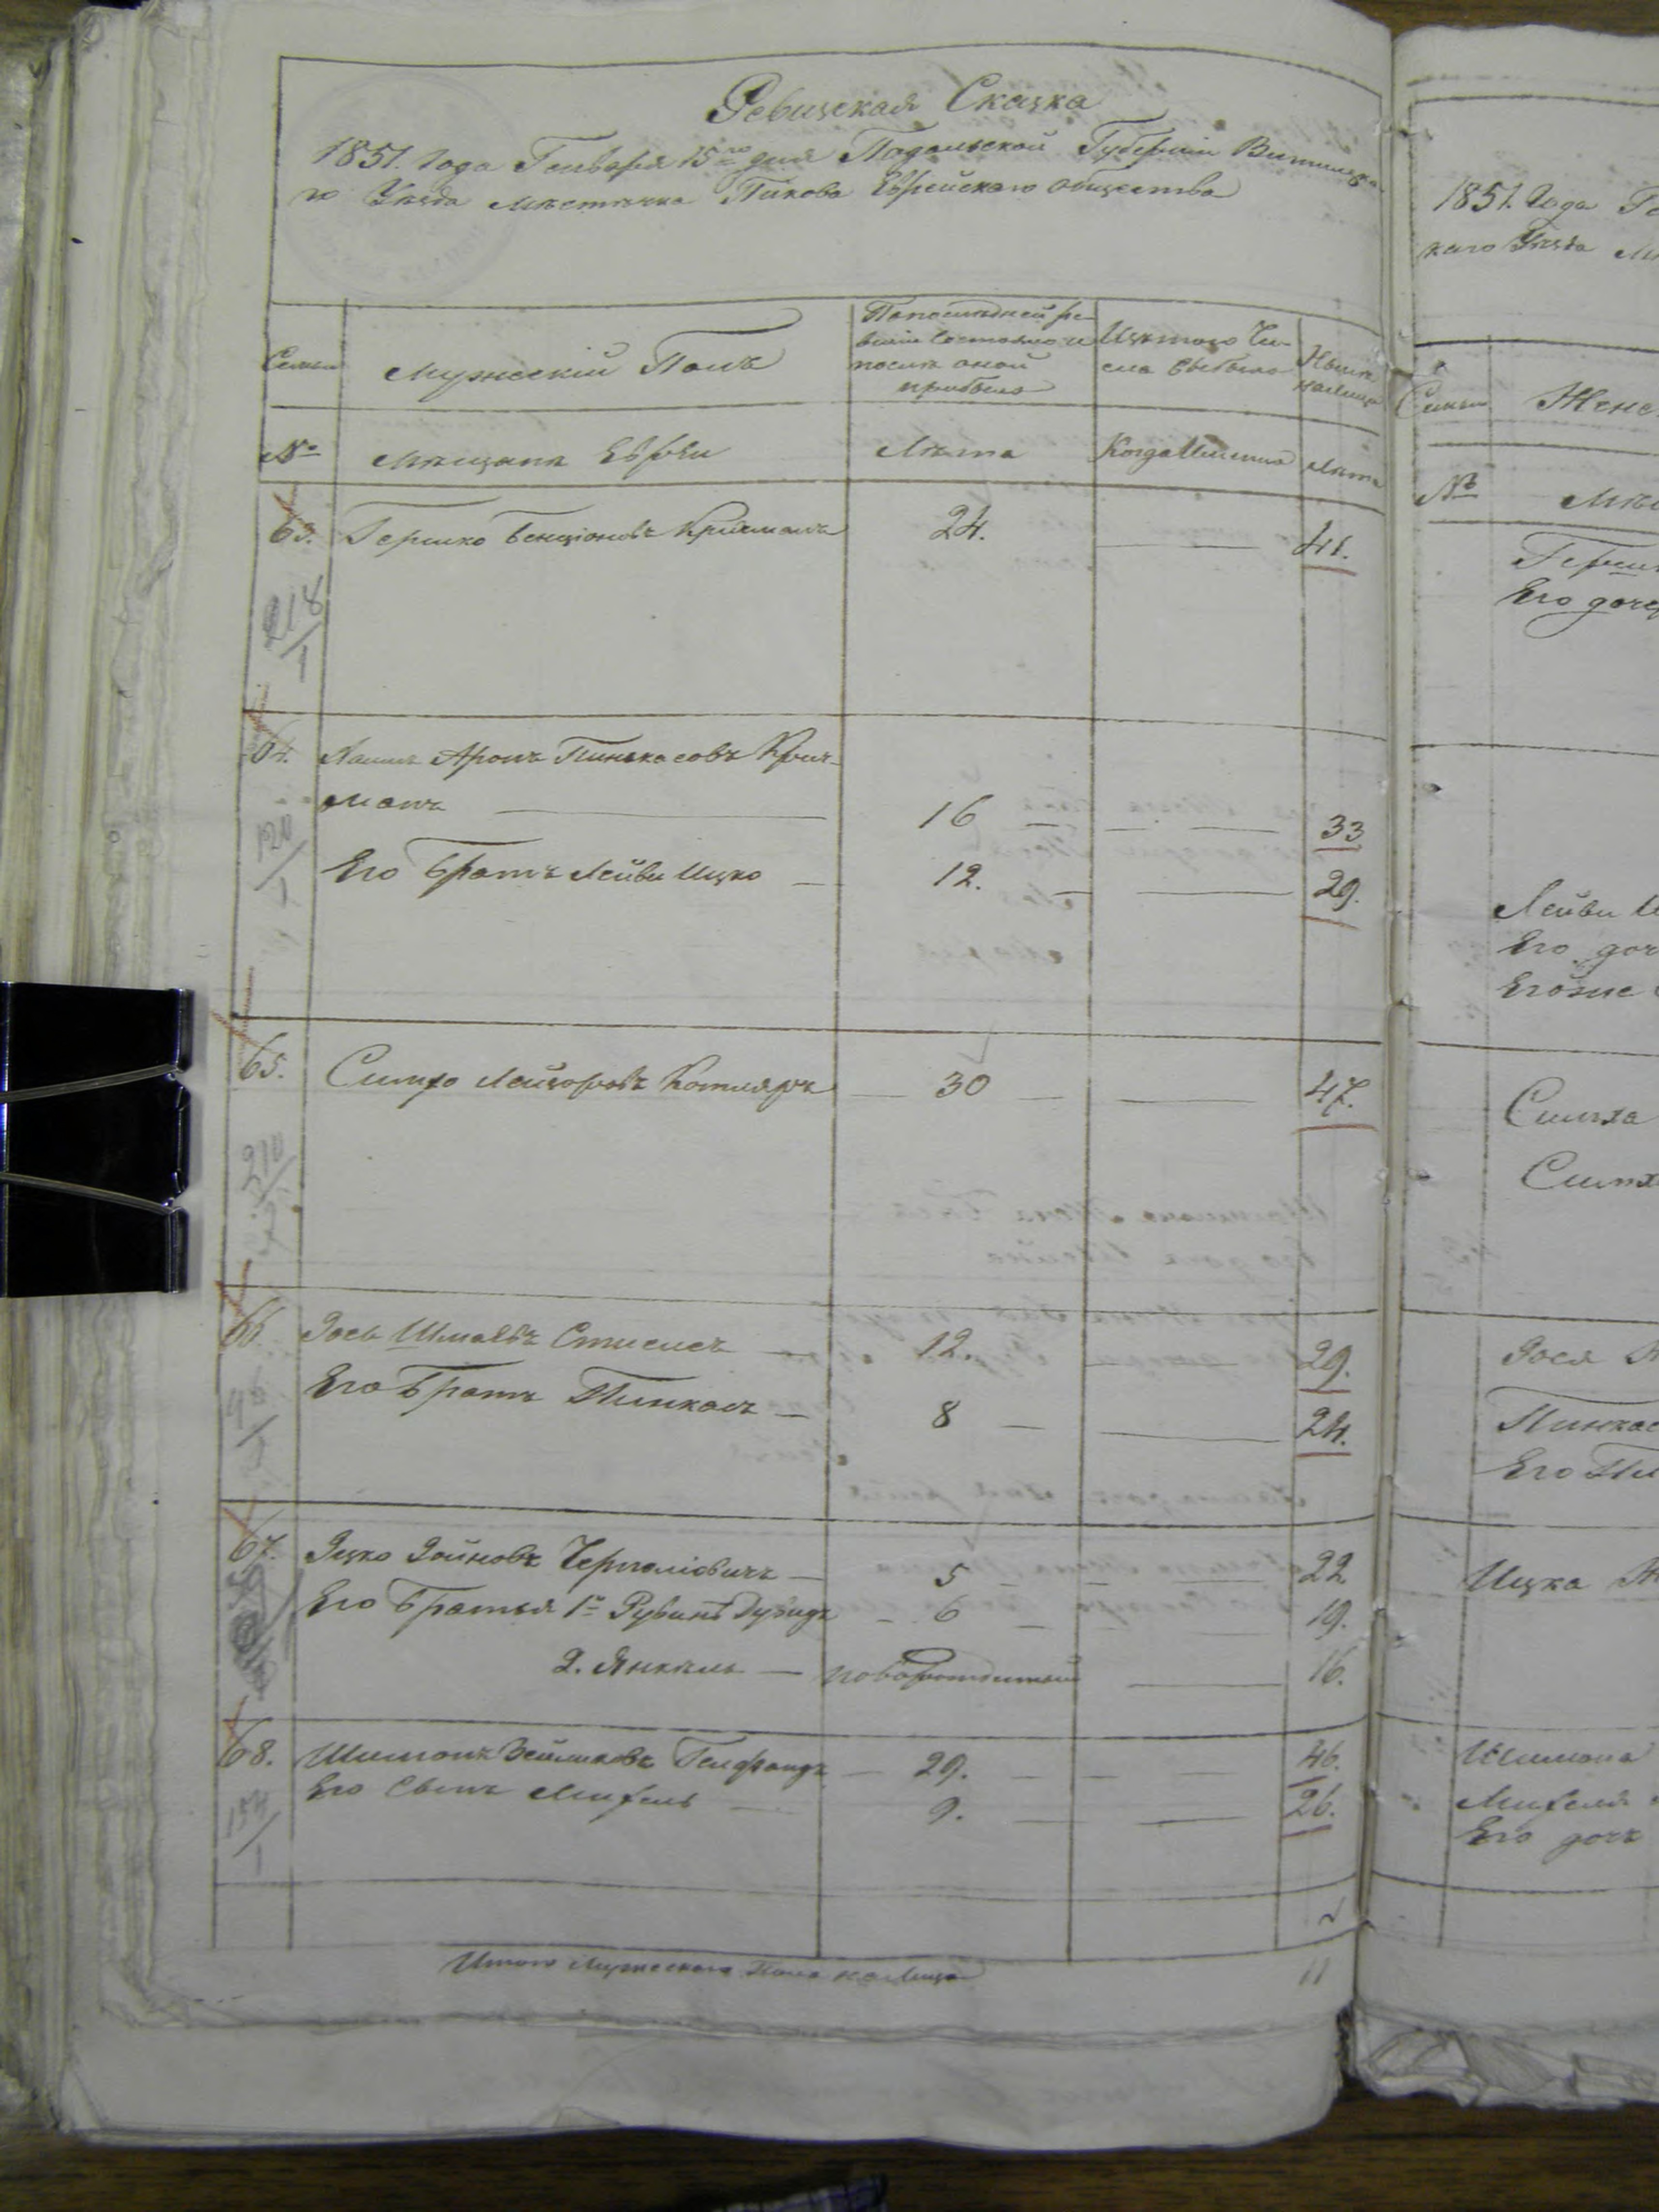 Ревизская Сказка
1851 Года Генваря 15го дня Подольской Губернии Винницка
го Уезда местечка Пикова Еврейскаго общества
Семьи
Мужеский Полъ
По последней ре-
визии состояло и
после оной
прибыло
Изъ того Чи-
сла выбыло
Ныне
налицо
№
Мещане Евреи
Лета
Когда Именно
Лета
63. Гершко Бенционовъ Кричманъ 24. 41.
18
1
64. Аронъ Пинькасовъ Крич-
манъ 16 33
Его Братъ Лейви Ицко 12. 29.
120
1
65. Симхо Лейзоровъ Котляръ 30 47.
210
66. Иось Шмаевъ 12. 29.
Его Братъ Пинкасъ 8 24.
67. Ицко 5 22
Его Братья 1й Рувинъ Дувидъ 6 19.
2. Янкель новорожденный 16.
68. Шимонъ Зейликовъ Гелфандъ 29. 46.
Его Сынъ Михель 9. 26.
Итого Мужескаго Пола налицо 11
1851. Года Ге
каго Уезда Ме
Семьи Женс
№ Меще
Герш
Его дочер
Лейви И
Его доч
Его же
Симха
Симх
Иося Ж
Пинкас
Его
Ицка Ж
Шимона
Михеля
Его доч